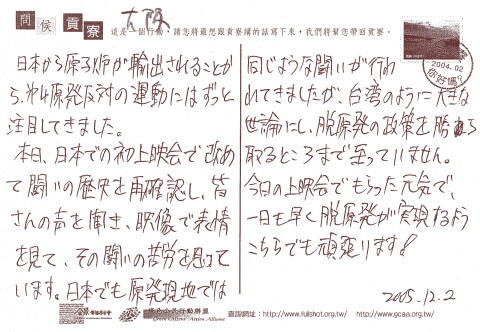 問侯貢寮
大阪
這是一個行動，請您將最想跟貢寮講的話寫下來，我們將幫您帶回貢寮。
日本から原子炉が輸出されることか
ら、第4原発反対の運動にはずっと
注目してきました。
本日、日本での初上映会で改め
て闘いの歴史を再確認し、皆
さんの声を聞き、映像で表情
を見て、その闘いの苦労を思って
います。日本でも原発現地では
同じような闘いが行わ
れてきましたが、台湾のように大きな
世論にし、脱原発の政策を勝ち
取るところまで至っていません。
今日の上映会でもらった元気で、
一日も早く脱原発が実現するよう
こちらでも頑張ります！
2005.12.2
2004.02
你好嗎?
綠色公民行動聯盟
Green Citizens' Action Alliance
查詢網址：http://www.fullshot.org.tw/ http://www.gcaa.org.tw/